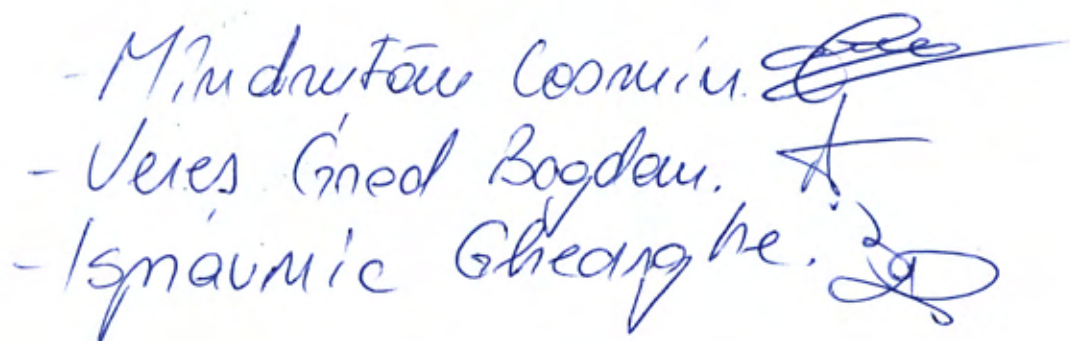 - Mîndruțău Cosmin.
- Vereș Gred Bogdan.
- Ispravnic Gheorghe.